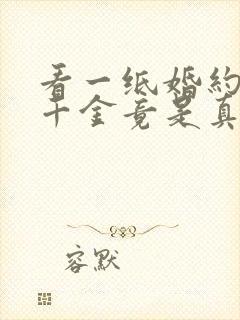 看一纸婚约
千金竟是真
容默